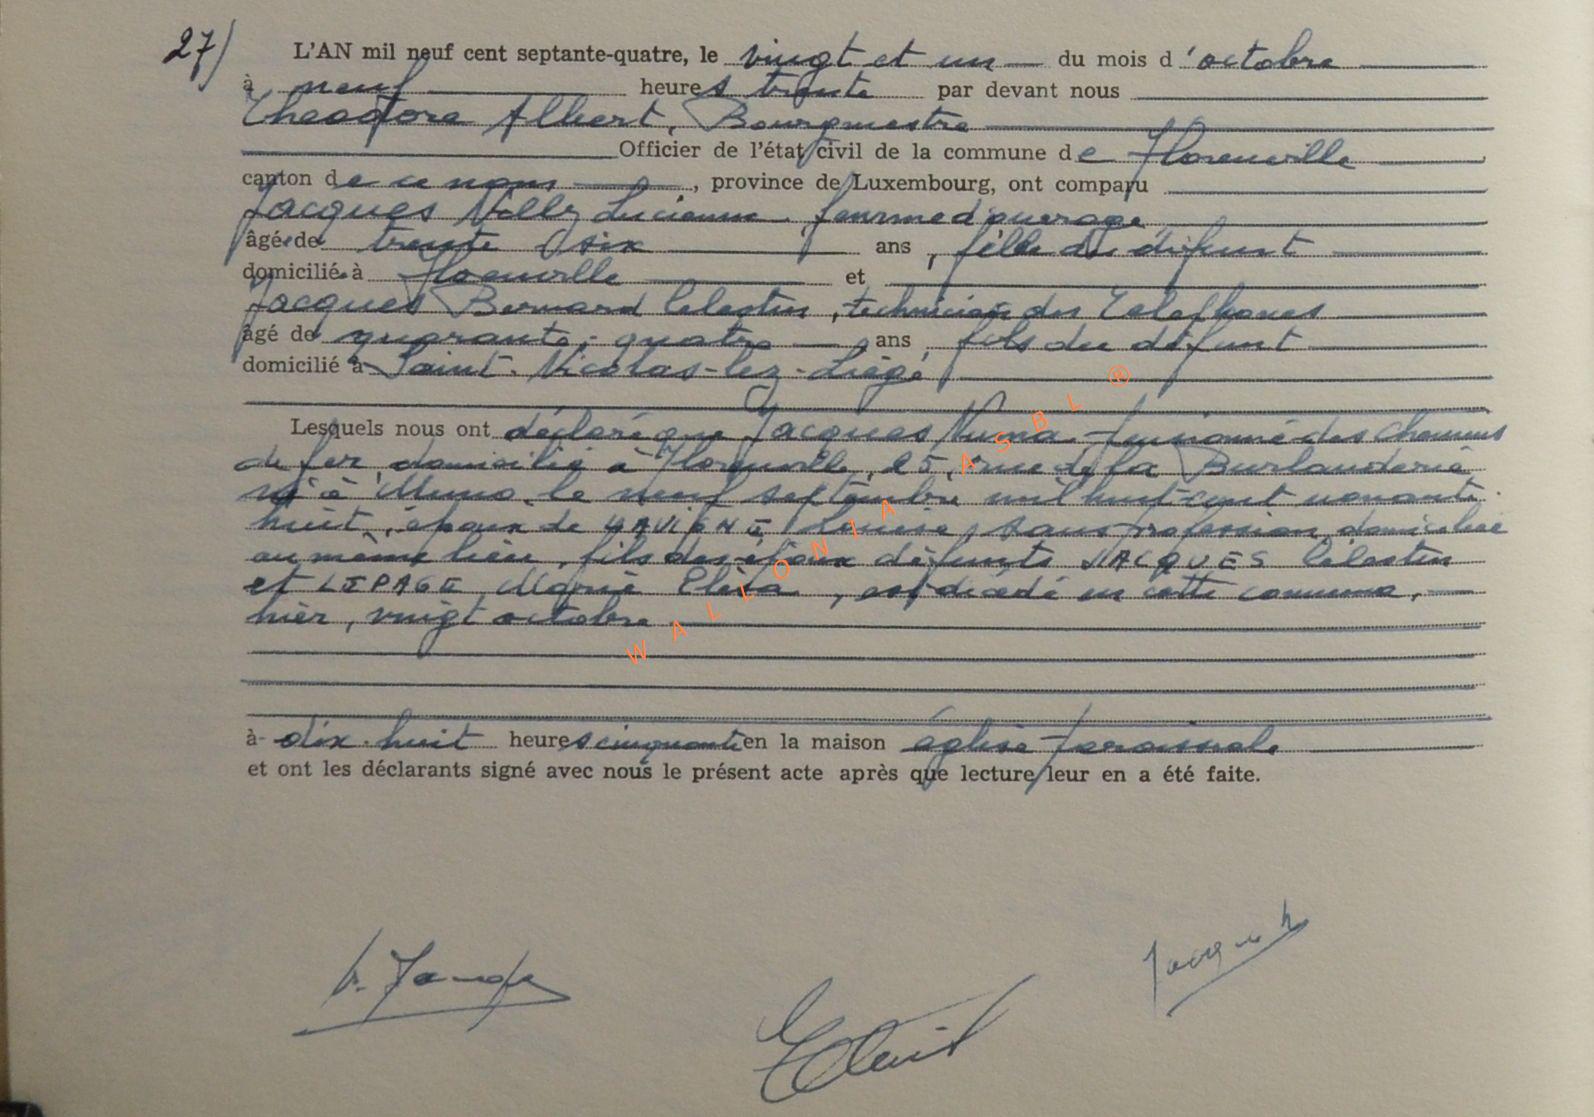 27/ L'AN mil neuf cent septante-quatre, le vingt et un du mois d'octobre
à neuf heures trente par devant nous
Theodore Albert, Bourgmestre
Officier de l'état civil de la commune de Florenville
canton de ce nom, province de Luxembourg, ont comparu
Jacques Nelly Lucienne femme d'ouvrage
âgée de trente six ans, fille du défunt
domiciliée à Florenville et
Jacques Bernard Célestin, technicien des Téléphones
âgé de quarante-quatre ans fils du défunt
domicilié à Saint-Nicolas-lez-Liège
Lesquels nous ont déclaré que Jacques Numa pensionné des chemins
de fer domicilié à Florenville, 25, rue de la Burlauderie
né à Muno, le neuf septembre mil huit cent nonante
huit, époux de Louise, sans profession, domiciliée
au même lieu, fils des époux défunts JACQUES Célestin
et LEPAGE, Marie Elisa, est décédé en cette commune,
hier, vingt octobre
à dix-huit heures cinquante en la maison église paroissiale
et ont les déclarants signé avec nous le présent acte après que lecture leur en a été faite.
Jacques
WALLONIA ASBL ®